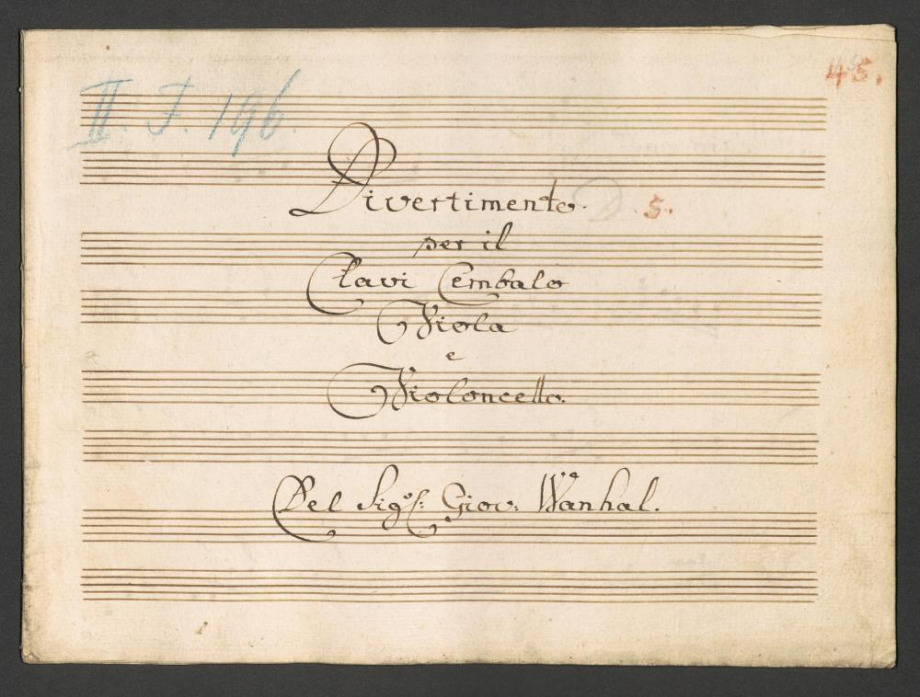 45.
II. F. 196.
Divertimento. D. 5.
per il
Clavi Cembalo
Viola
e
Violoncello.
Del Sigor: Giov: Wanhal.